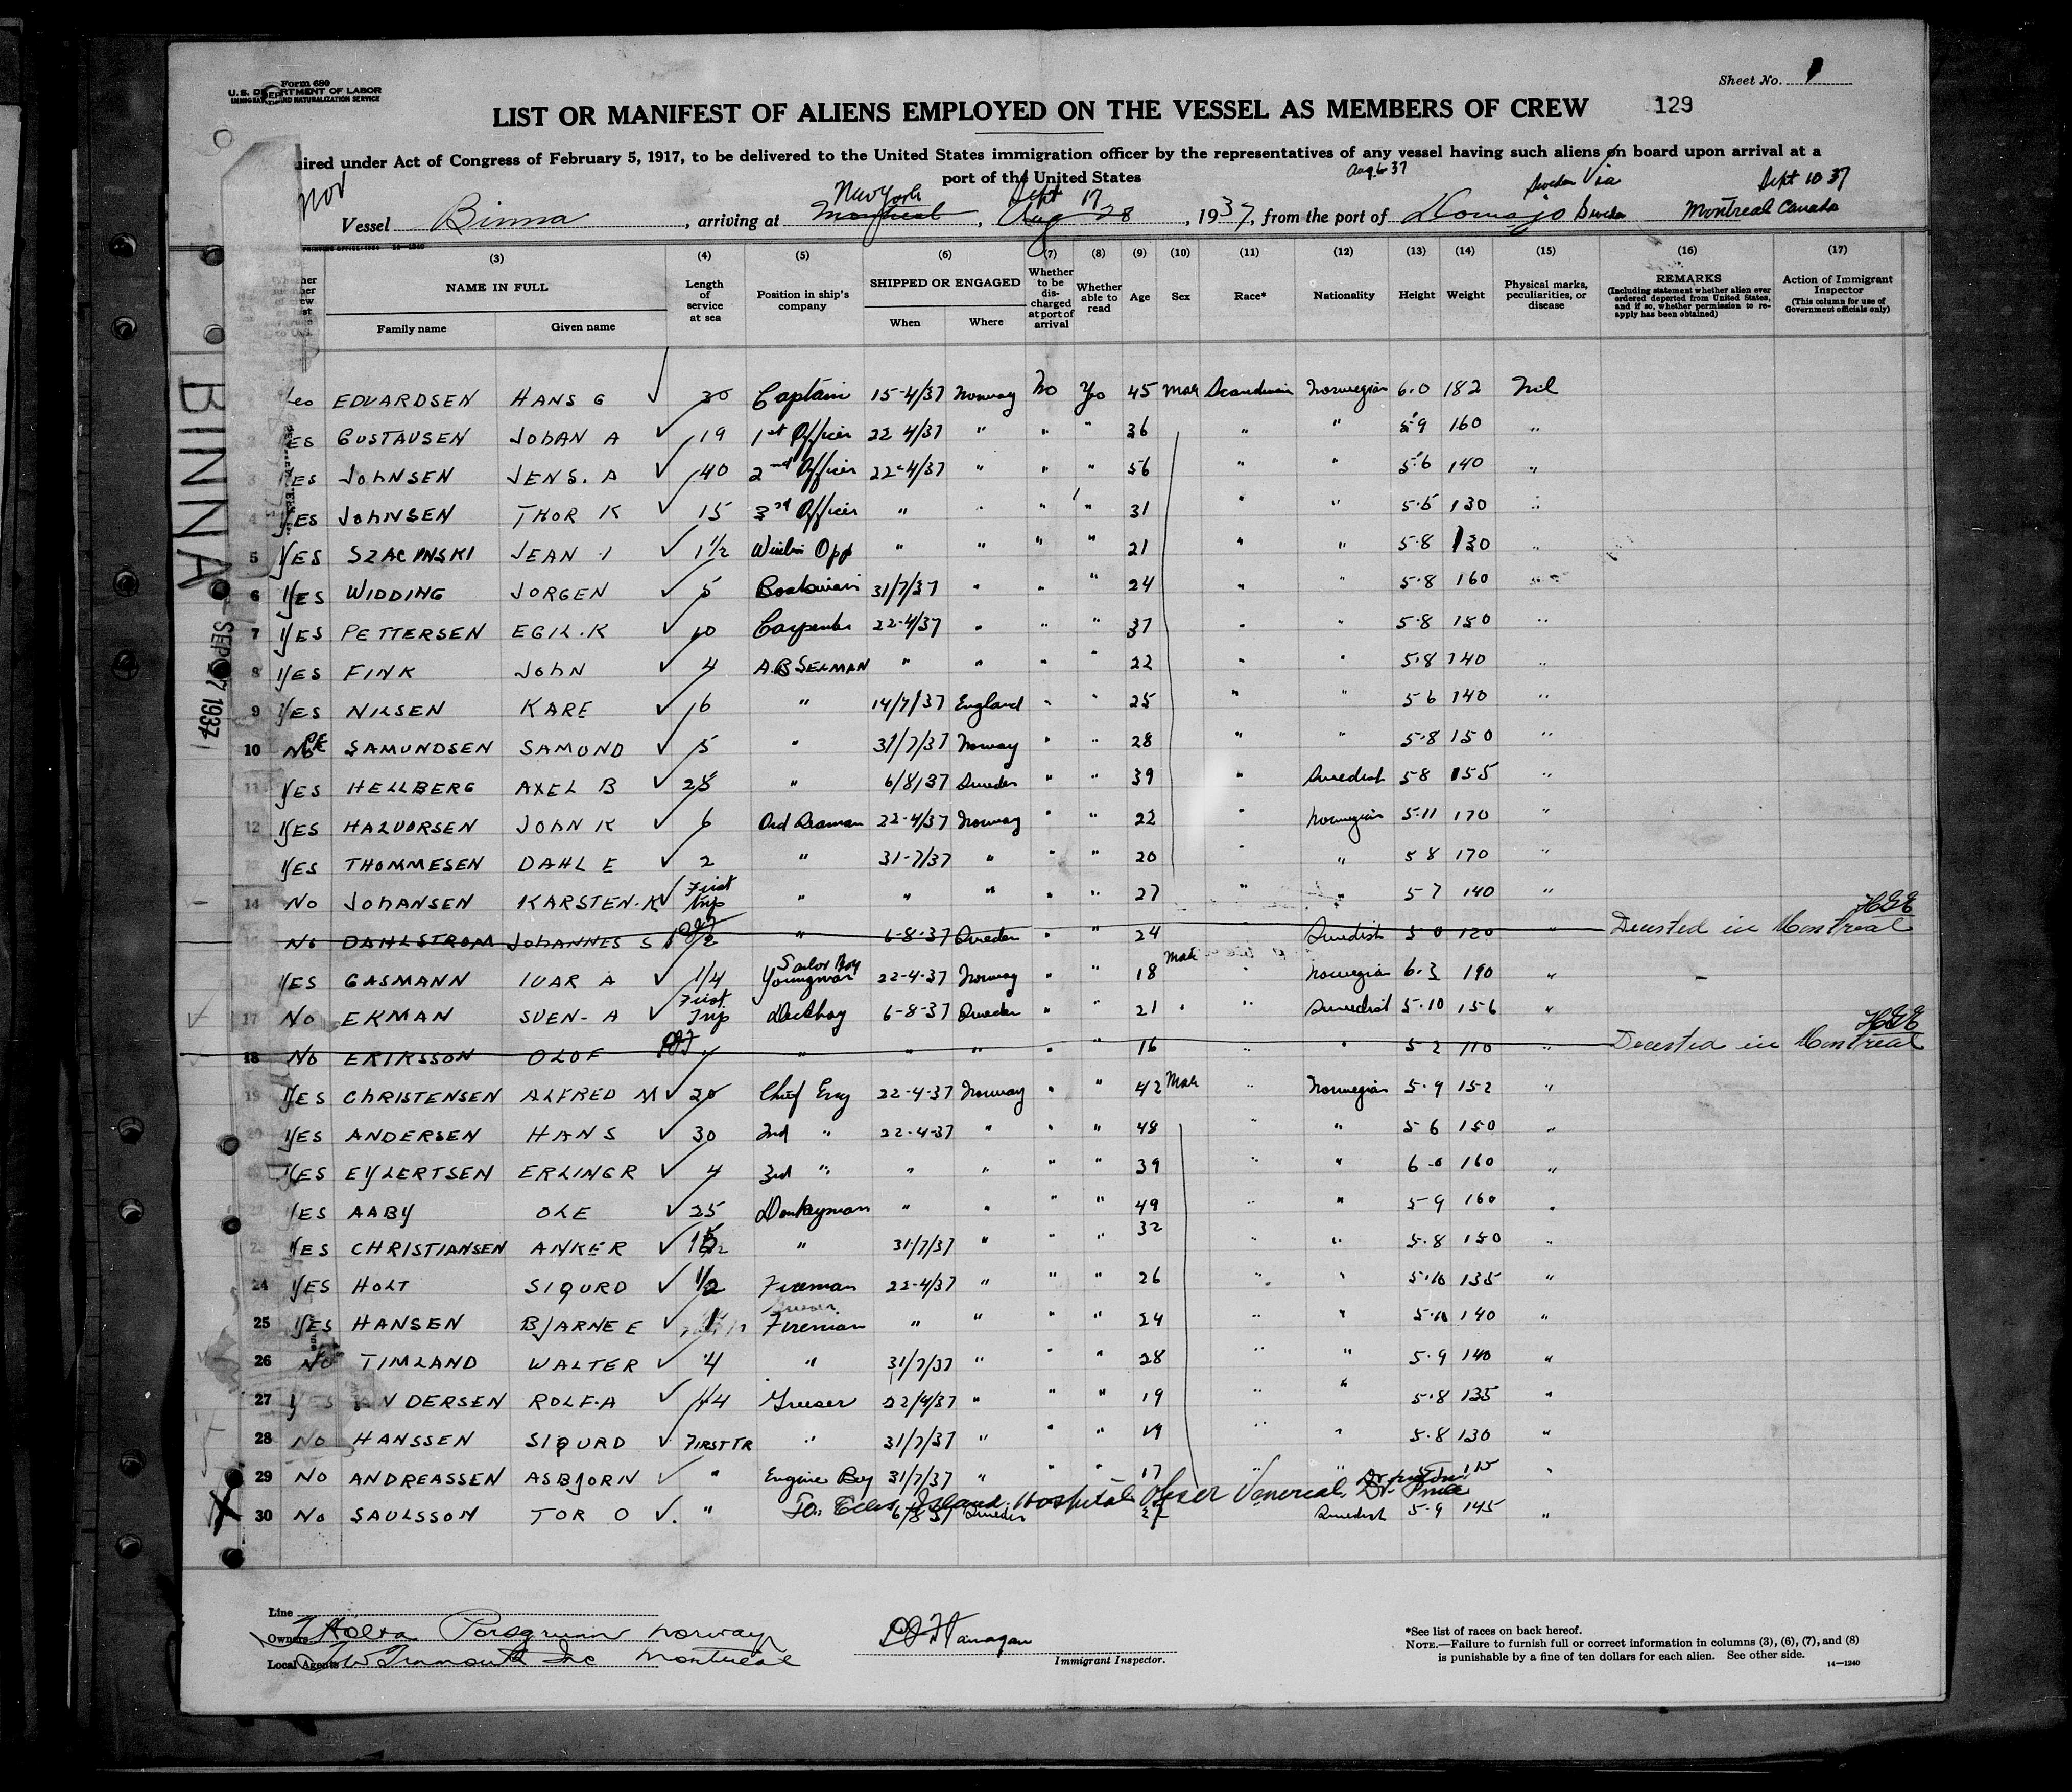 Form 680
U. S. DEPARTMENT OF LABOR
IMMIGRATION AND NATURALIZATION SERVICE
Sheet No. 1
LIST OR MANIFEST OF ALIENS EMPLOYED ON THE VESSEL AS MEMBERS OF CREW 129
uired under Act of Congress of February 5, 1917, to be delivered to the United States immigration officer by the representatives of any vessel having such aliens on board upon arrival at a
port of the United States
Nor
Aug 6 37
New York Sept 17 Sweden Via Sept 10 37
Vessel Binna, arriving at Montreal, Aug 28, 1937, from the port of Domsjo Sweden Montreal Canada
(3) (4) (5) (6) (7) (8) (9) (10) (11) (12) (13) (14) (15) (16) (17)
NAME IN FULL
Family name Given name
Length of service at sea
Position in ship's company
SHIPPED OR ENGAGED
When Where
Whether to be discharged at port of arrival
Whether able to read
Age
Sex
Race*
Nationality
Height
Weight
Physical marks, peculiarities, or disease
REMARKS
(Including statement whether alien ever ordered deported from United States, and if so, whether permission to reapply has been obtained)
Action of Immigrant Inspector
(This column for use of Government officials only)
BINNA
SEP 17 1937
Yes EDVARDSEN HANS G 30 Captain 15-4/37 Norway No Yes 45 Male Scandinavin Norwegian 6.0 182 Nil
2 YES GUSTAVSEN JOHAN A 19 1st Officer 22 4/37 " " " 36 " " 5.9 160 "
3 YES JOHNSEN JENS. A 40 2nd Officer 22-4/37 " " " 56 " " 5.6 140 "
4 YES JOHNSEN THOR K 15 3rd Officer " " " " 31 " " 5.5 130 "
5 YES SZACINSKI JEAN I 1½ Wirlis Opp " " " " 21 " " 5.8 130 "
6 YES WIDDING JORGEN 5 Boatswain 31/7/37 " " " 24 " " 5.8 160 "
7 YES PETTERSEN EGIL.K 10 Carpenter 22-4/37 " " " 37 " " 5.8 150 "
8 YES FINK JOHN 4 A.B SEAMAN " " " " 22 " " 5.8 140 "
9 YES NILSEN KARE 6 " 14/7/37 England " " 25 " " 5 6 140 "
10 No SAMUNDSEN SAMUND 5 " 31/7/37 Norway " " 28 " " 5.8 150 "
11 YES HELLBERG AXEL B 25 " 6/8/37 Sweden " " 39 " Swedish 58 155 "
12 YES HALVORSEN JOHN K 6 Ord Seaman 22-4/37 Norway " " 22 " Norwegian 5.11 170 "
13 YES THOMMESEN DAHL E 2 " 31-7/37 " " " 20 " " 5 8 170 "
14 No JOHANSEN KARSTEN.K First trip " " " " " 27 " " 5 7 140 "
HGE
15 No DAHLSTROM JOHANNES S " 6-8-37 Sweden " " 24 Swedish 5 0 120 " Deserted in Montreal
16 YES GASMANN IVAR A 1/4 Sailor Boy Youngman 22-4-37 Norway " " 18 Male " Norwegian 6.3 190 "
17 No EKMAN SVEN- A First Trip Deckboy 6-8-37 Sweden " " 21 " " Swedish 5.10 156 "
HGE
18 No ERIKSSON OLOF " " " " " 16 " " 5 2 110 " Deserted in Montreal
19 YES CHRISTENSEN ALFRED M 20 Chief Eng 22-4-37 Norway " " 42 Male " Norwegian 5.9 152 "
20 YES ANDERSEN HANS 30 2nd " 22-4-37 " " " 48 " " 5 6 150 "
YES EIJLERTSEN ERLING R 4 3rd " " " " " 39 " " 6-0 160 "
YES AABY OLE 25 Donkeyman " " " " 49 " " 5-9 160 "
23 YES CHRISTIANSEN ANKER " 31/7/37 " " " 32 " " 5.8 150 "
24 YES HOLT SIGURD 1/2 Fireman 22-4/37 " " " 26 " " 5.10 135 "
25 YES HANSEN BJARNE E 1 Fireman " " " " 24 " 5.11 140 "
26 No TIMLAND WALTER 4 " 31/7/37 " " " 28 " " 5.9 140 "
27 YES ANDERSEN ROLF.A 1/4 Greaser 22/4/37 " " " 19 " " 5.8 135 "
28 No HANSSEN SIGURD FIRST TR " 31/7/37 " " " 19 " " 5.8 130 "
29 No ANDREASSEN ASBJORN " Engine Boy 31/7/37 " " " 17 " " 115 "
To Ellis Island Hospital Venereal, Dr.
30 No SAULSSON TOR O " 6/8 37 Sweden Swedish 5.9 145 "
Line
Owners Porsgrunn Norway
Local Agents Inc Montreal
Immigrant Inspector.
*See list of races on back hereof.
NOTE.—Failure to furnish full or correct information in columns (3), (6), (7), and (8)
is punishable by a fine of ten dollars for each alien. See other side.
14—1240